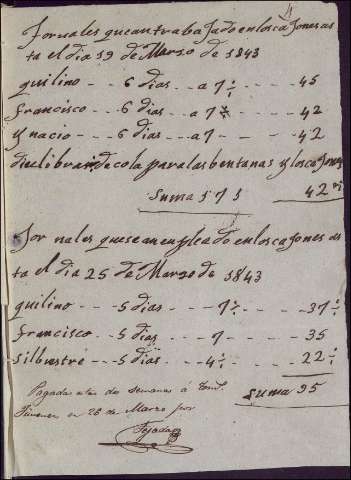 Jornales que an trabajado en los cajones as
ta el dia 19 de Marzo de 1843
quilino - - 6 dias - - a 7½ - - - 45
francisco - 6 dias - - a 7 - - - 42
Ynacio - - 6 dias - - a 7 - - - 42
diez libras de cola para las bentanas y los cajones
Suma 171 42
Jornales que se an enpleado en los cajones as
ta el dia 25 de Marzo de 1843
quilino - - - 5 dias - - - 7½ - - - 37½
francisco - - 5 dias - - - 7 - - - 35
silbestre - - 5 dias - - - 4½ - - - 22½
Suma 95
Pagadas estas dos semanas á
Jimenez en 26 de Marzo por
Tejada